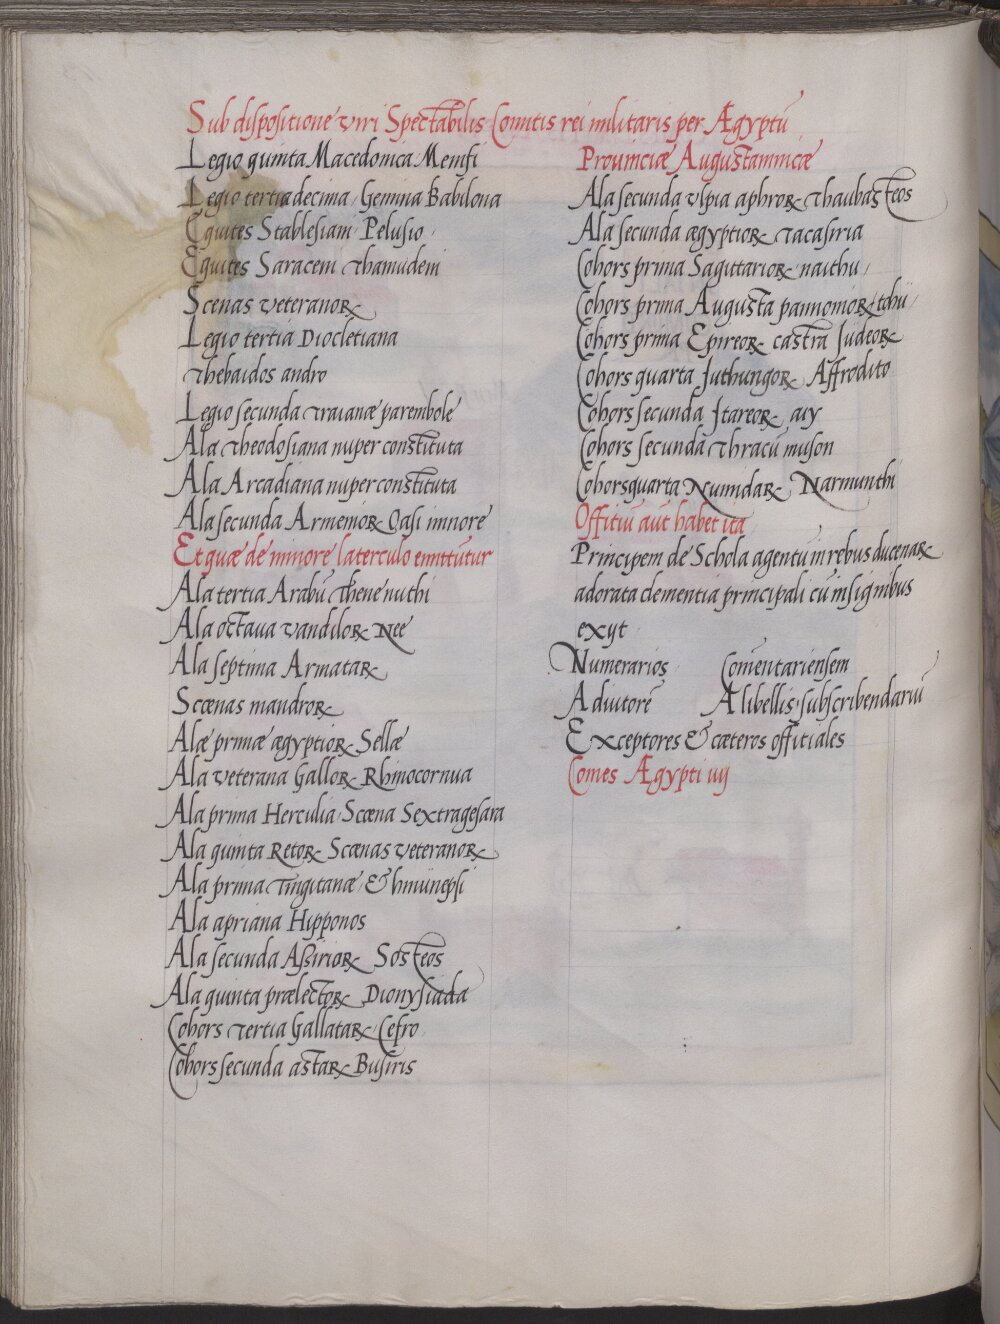 Sub dispositione viri Spectabilis Comitis rei militaris per Ægyptũ
Legio quinta Macedonica Memfi
Legio tertiadecima Gemina Babilona
Equites Stablesiani Pelusio
Equites Saraceni Thamudeni
Scenas veteranoꝝ
Legio tertia Diocletiana
Thebaidos andro
Legio secunda Traianæ parembole
Ala Theodosiana nuper constituta
Ala Arcadiana nuper constituta
Ala secunda Armenioꝝ Oasi minore
Et quæ de minore laterculo emittũtur
Ala tertia Arabũ thenenuthi
Ala octava vandiloꝝ Nee
Ala septima Armataꝝ
Scœnas mandroꝝ
Alæ primæ ægyptioꝝ Sellæ
Ala veterana Galloꝝ Rhinocornua
Ala prima Herculia Scœna Sextragesara
Ala quinta Retoꝝ Scœnas veteranoꝝ
Ala prima Tingitanæ &
Ala apriana Hipponos
Ala secunda Aßirioꝝ Sosteos
Ala quinta prælectoꝝ Dionysiada
Cohors tertia Gallataꝝ Cefro
Cohors secunda astaꝝ Busiris
Provinciæ Augustamnicæ
Ala secunda vlpia aphroꝝ thaubasteos
Ala secunda ægyptioꝝ tacasiria
Cohors prima Sagittarioꝝ naithu
Cohors prima Augusta pannonioꝝ tohu
Cohors prima Epireoꝝ castra Judeoꝝ
Cohors quarta Juthungoꝝ Affrodito
Cohors secunda Itareoꝝ aiy
Cohors secunda Thracũ muson
Cohors quarta Numidaꝝ Narmunthi
Offitiũ aut habet ita
Principem de Schola agentum in rebus ducenaꝝ
adorata clementia principali cũ insignibus
exyt
Numerarios Comentariensem
Adiutorẽ A libellis subscribendariũ
Exceptores & cæteros offitiales
Comes Ægypti iiij